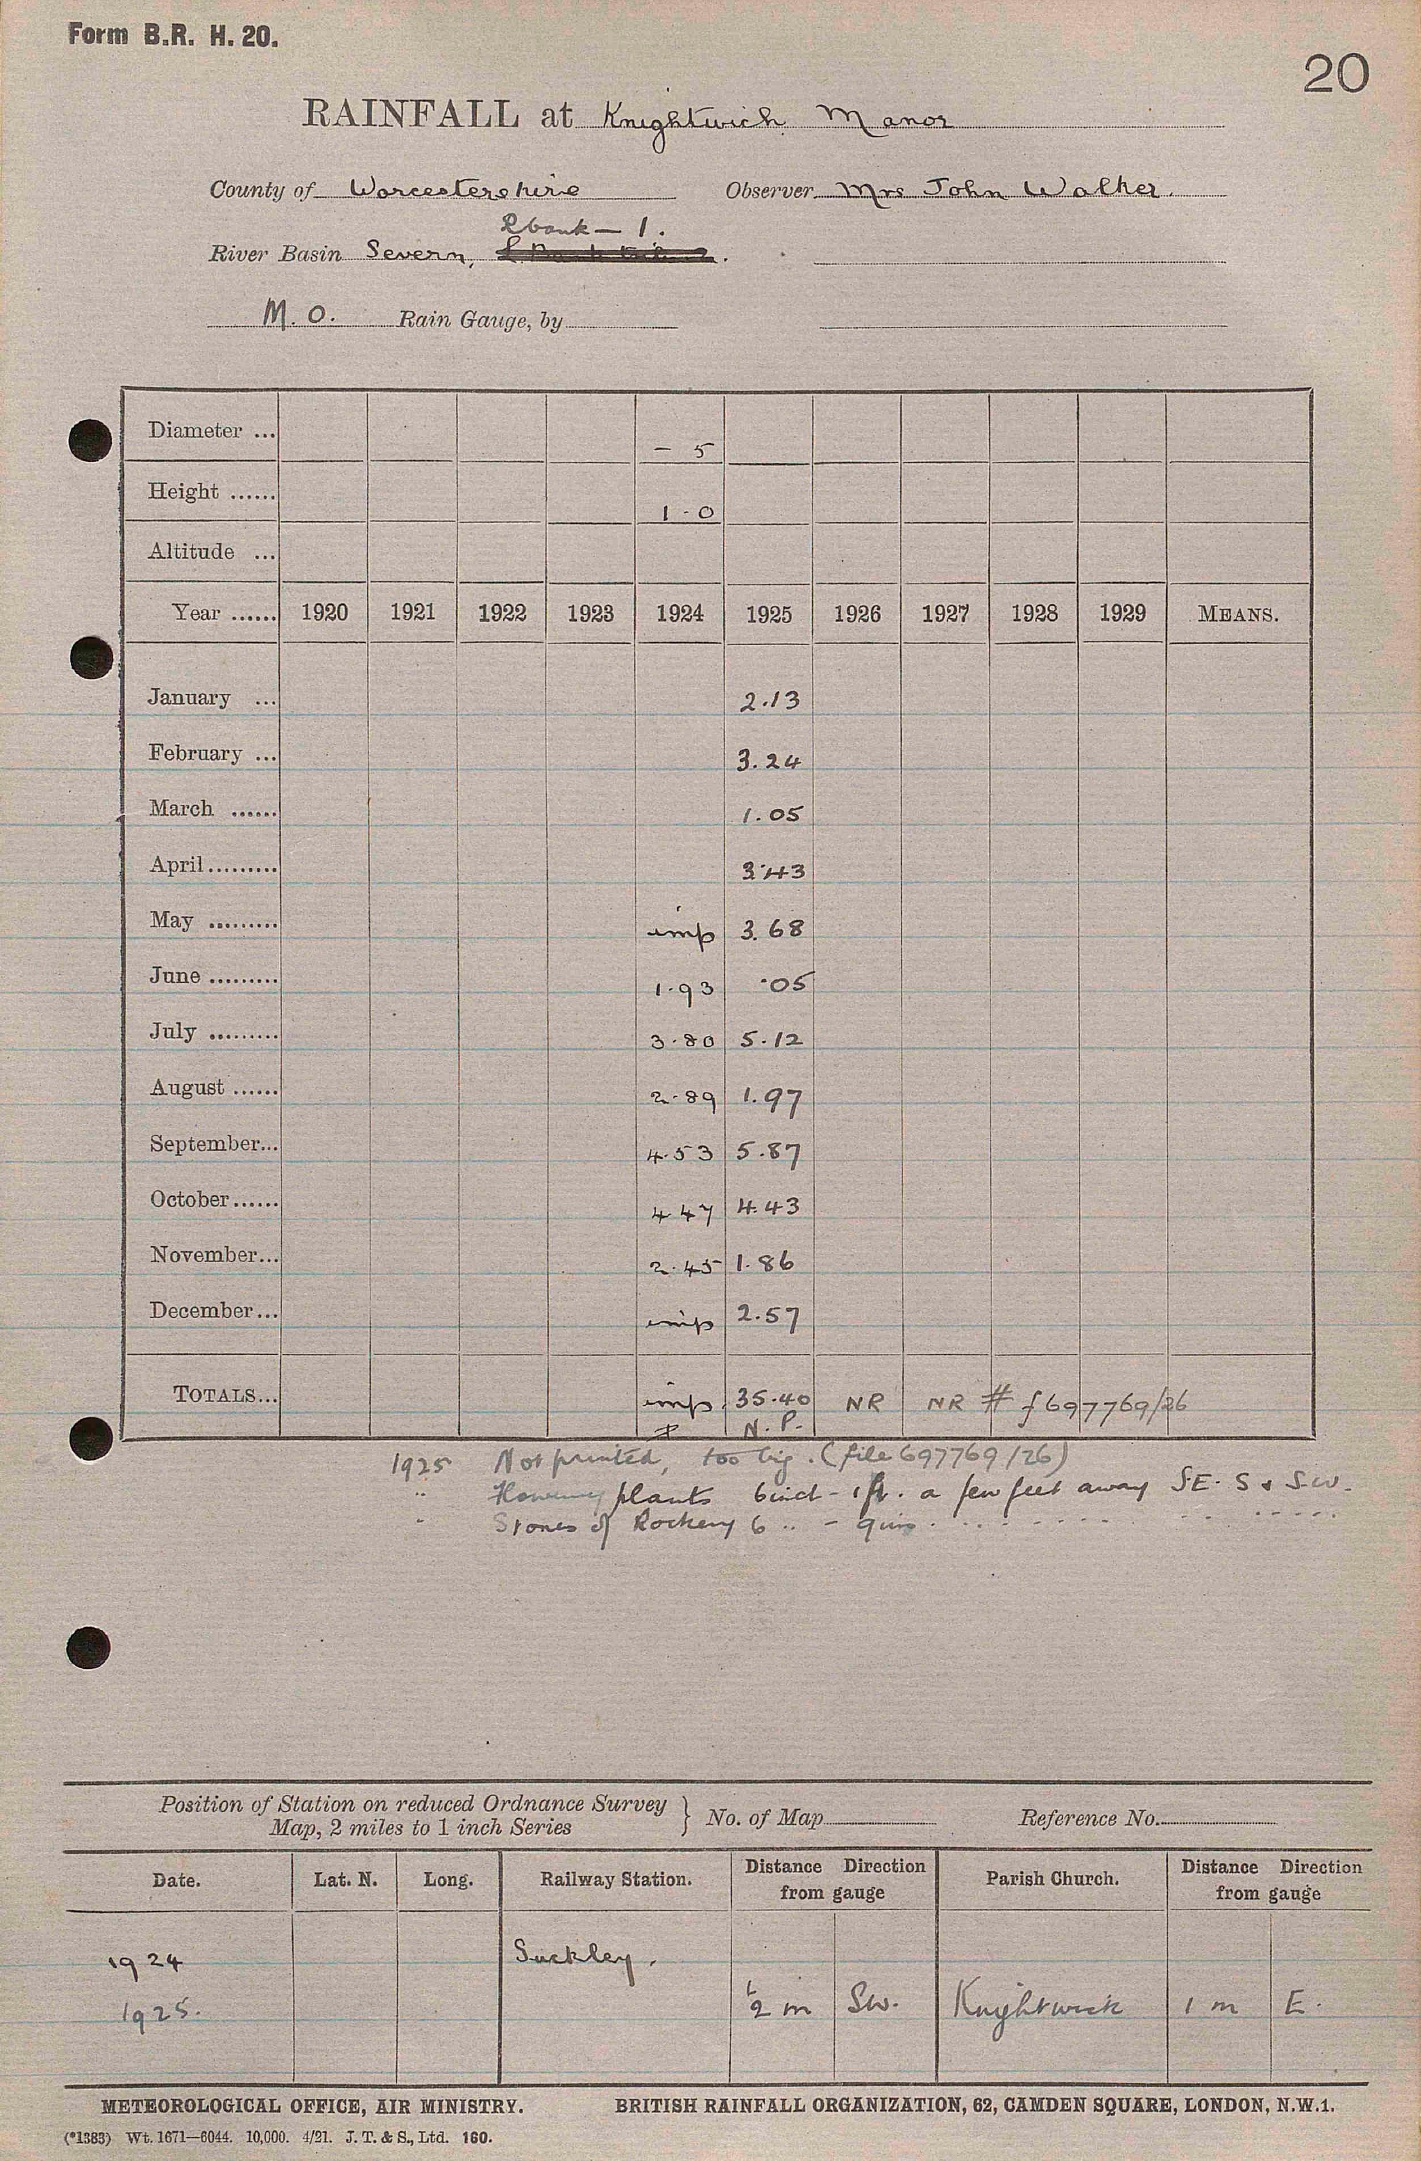 Form B.R. H. 20.
20
RAINFALL at Knightwich Manor
County of Worcestershire Observer Mrs John Walker.
Rbank — 1.
River Basin Severn,
M. O. Rain Gauge, by
Diameter ... – 5
Height ...... 1 - 0
Altitude ...
Year ...... 1920 1921 1922 1923 1924 1925 1926 1927 1928 1929 MEANS.
January ... 2.13
February ... 3.24
March ...... 1.05
April......... 3.43
May ......... imp 3.68
June ......... 1.93 .05
July ......... 3.80 5.12
August ...... 2.89 1.97
September... 4.53 5.87
October...... 4 47 4.43
November... 2.45 1.86
December... imp 2.57
TOTALS... imp. 35.40 NR NR # f 697769/26
N. P.
1925 Not printed, too big. (file 697769/26)
" plants 6inch - 1ft. a few feet away S.E. S & S.W.
" Stones of Rockery 6 " - 9ins.
Position of Station on reduced Ordnance Survey } No. of Map Reference No.
Map, 2 miles to 1 inch Series
Date. Lat. N. Long. Railway Station. Distance Direction from gauge Parish Church. Distance Direction from gauge
1924 Suckley.
1925. ½ m SW. Knightwick 1 m E.
METEOROLOGICAL OFFICE, AIR MINISTRY. BRITISH RAINFALL ORGANIZATION, 62, CAMDEN SQUARE, LONDON, N.W.1.
(*1383) Wt. 1671—6044. 10,000. 4/21. J. T. & S., Ltd. 160.